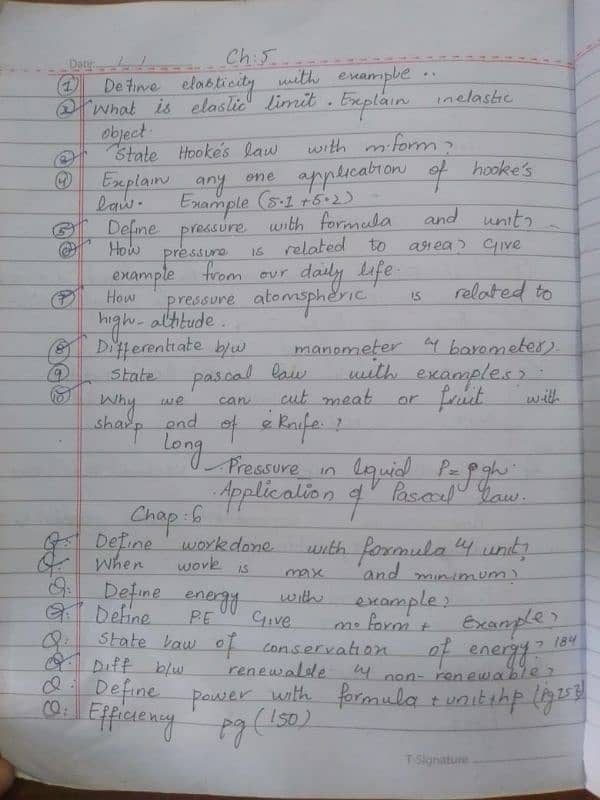 Date: / /
Ch:5
① Define elasticity with example..
② What is elastic limit. Explain inelastic
object.
③ State Hooke's law with m.form?
④ Explain any one application of hooke's
law. Example (5.1+5.2)
⑤ Define pressure with formula and unit?
⑥ How pressure is related to area? Give
example from our daily life.
⑦ How pressure atomspheric is related to
high-altitude.
⑧ Differentiate b/w manometer & barometer?
⑨ State pascal law with examples?
⑩ Why we can cut meat or fruit with
sharp end of Knife.?
Long
Pressure in liquid P=ρgh.
.Application of Pascal law.
Chap:6
Q: Define workdone with formula & unit?
Q: When work is max and minimum?
Q: Define energy with example?
Q: Define P.E Give m.form + Example?
Q: State law of conservation of energy? 184
Q: Diff b/w renewable & non-renewable?
Q: Define power with formula +unit+hp
Q: Efficiency pg (150)
T·Signature